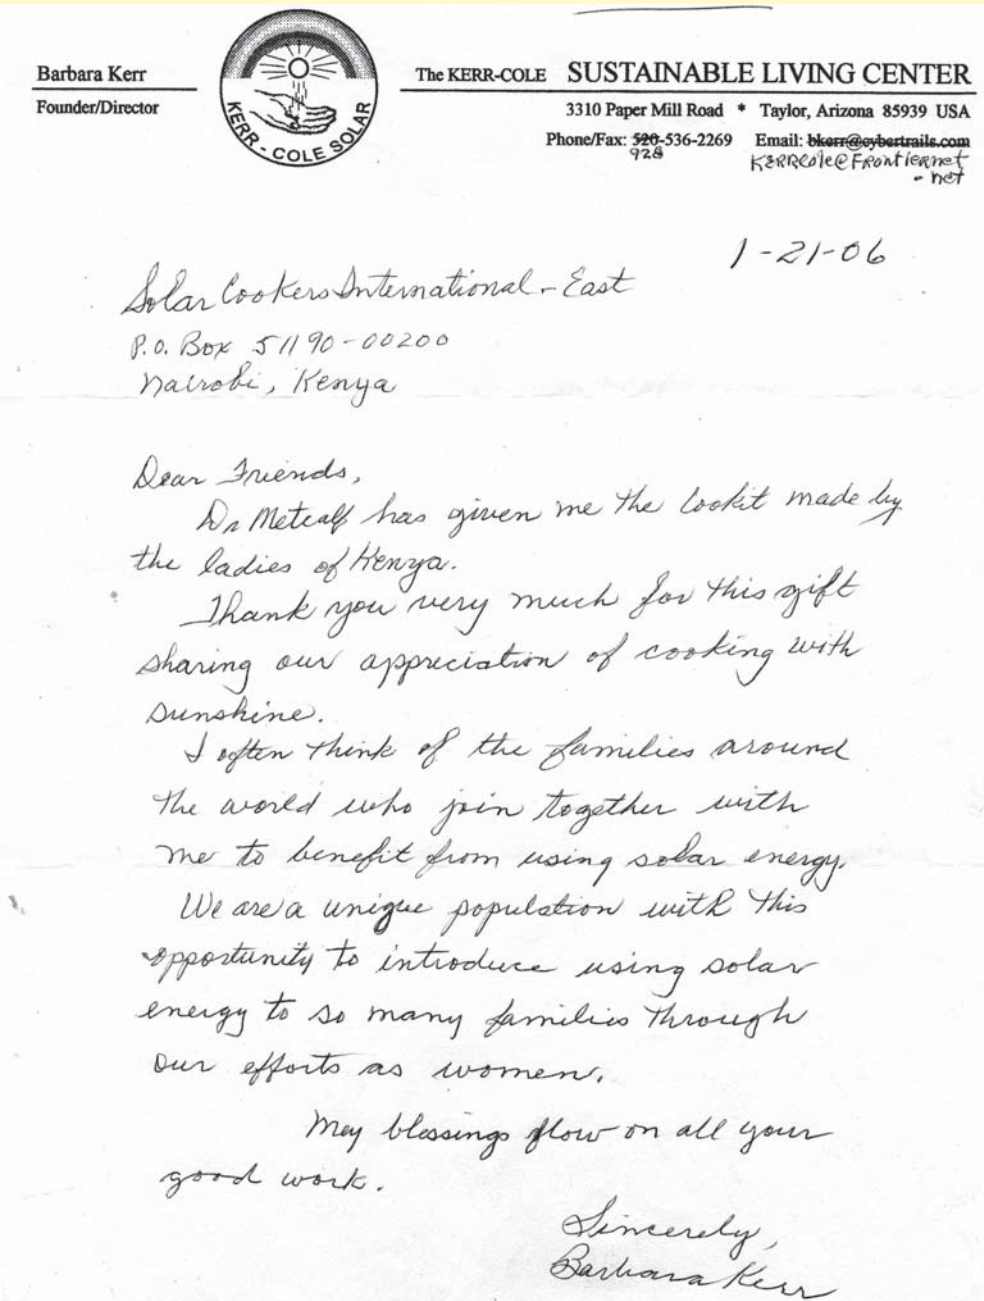 Barbara Kerr
Founder/Director
KERR-COLE SOLAR
The KERR-COLE SUSTAINABLE LIVING CENTER
3310 Paper Mill Road * Taylor, Arizona 85939 USA
Phone/Fax: 520-536-2269 Email: bkerr@cybertrails.com
928 KERRCole@Frontiernet
.net
1-21-06
Solar Cookers International - East
P.O. Box 51190-00200
Nairobi, Kenya
Dear Friends,
Dr Metcalf has given me the Cookit made by
the ladies of Kenya.
Thank you very much for this gift
sharing our appreciation of cooking with
sunshine.
I often think of the families around
the world who join together with
me to benefit from using solar energy.
We are a unique population with this
opportunity to introduce using solar
energy to so many families through
our efforts as women.
May blessings flow on all your
good work.
Sincerely,
Barbara Kerr